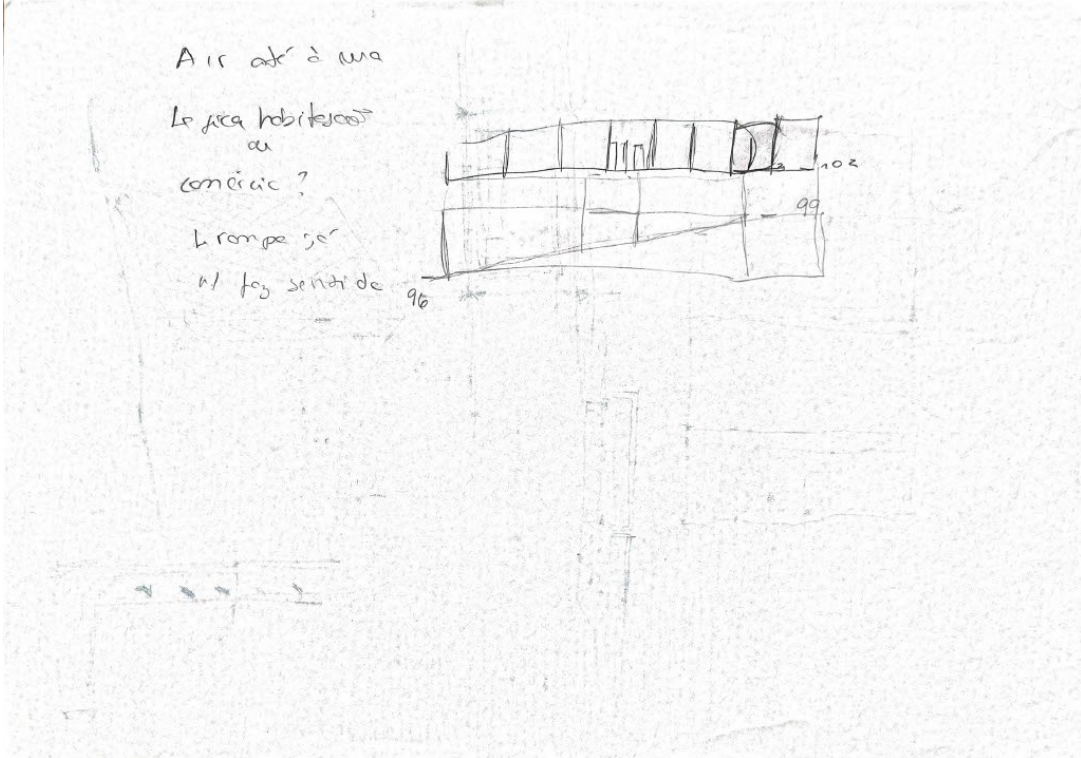 A ir até à rua
↳ fica habitação
ou
comércio?
↳ rampa só
n/ faz sentido
102
99
96